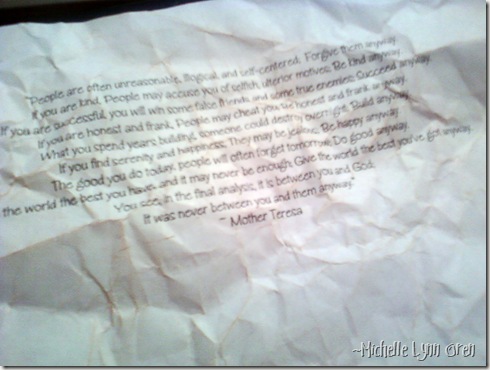 "People are often unreasonable, illogical, and self-centered; Forgive them anyway.
If you are kind, People may accuse you of selfish, ulterior motives; Be kind anyway.
If you are successful, you will win some false friends and some true enemies; Succeed anyway.
If you are honest and frank, People may cheat you; Be honest and frank anyway.
What you spend years building, someone could destroy overnight; Build anyway.
If you find serenity and happiness, They may be jealous; Be happy anyway.
The good you do today, people will often forget tomorrow; Do good anyway.
the world the best you have, and it may never be enough; Give the world the best you've got anyway.
You see, in the final analysis, it is between you and God;
It was never between you and them anyway."
~ Mother Teresa
~Michelle Lynn